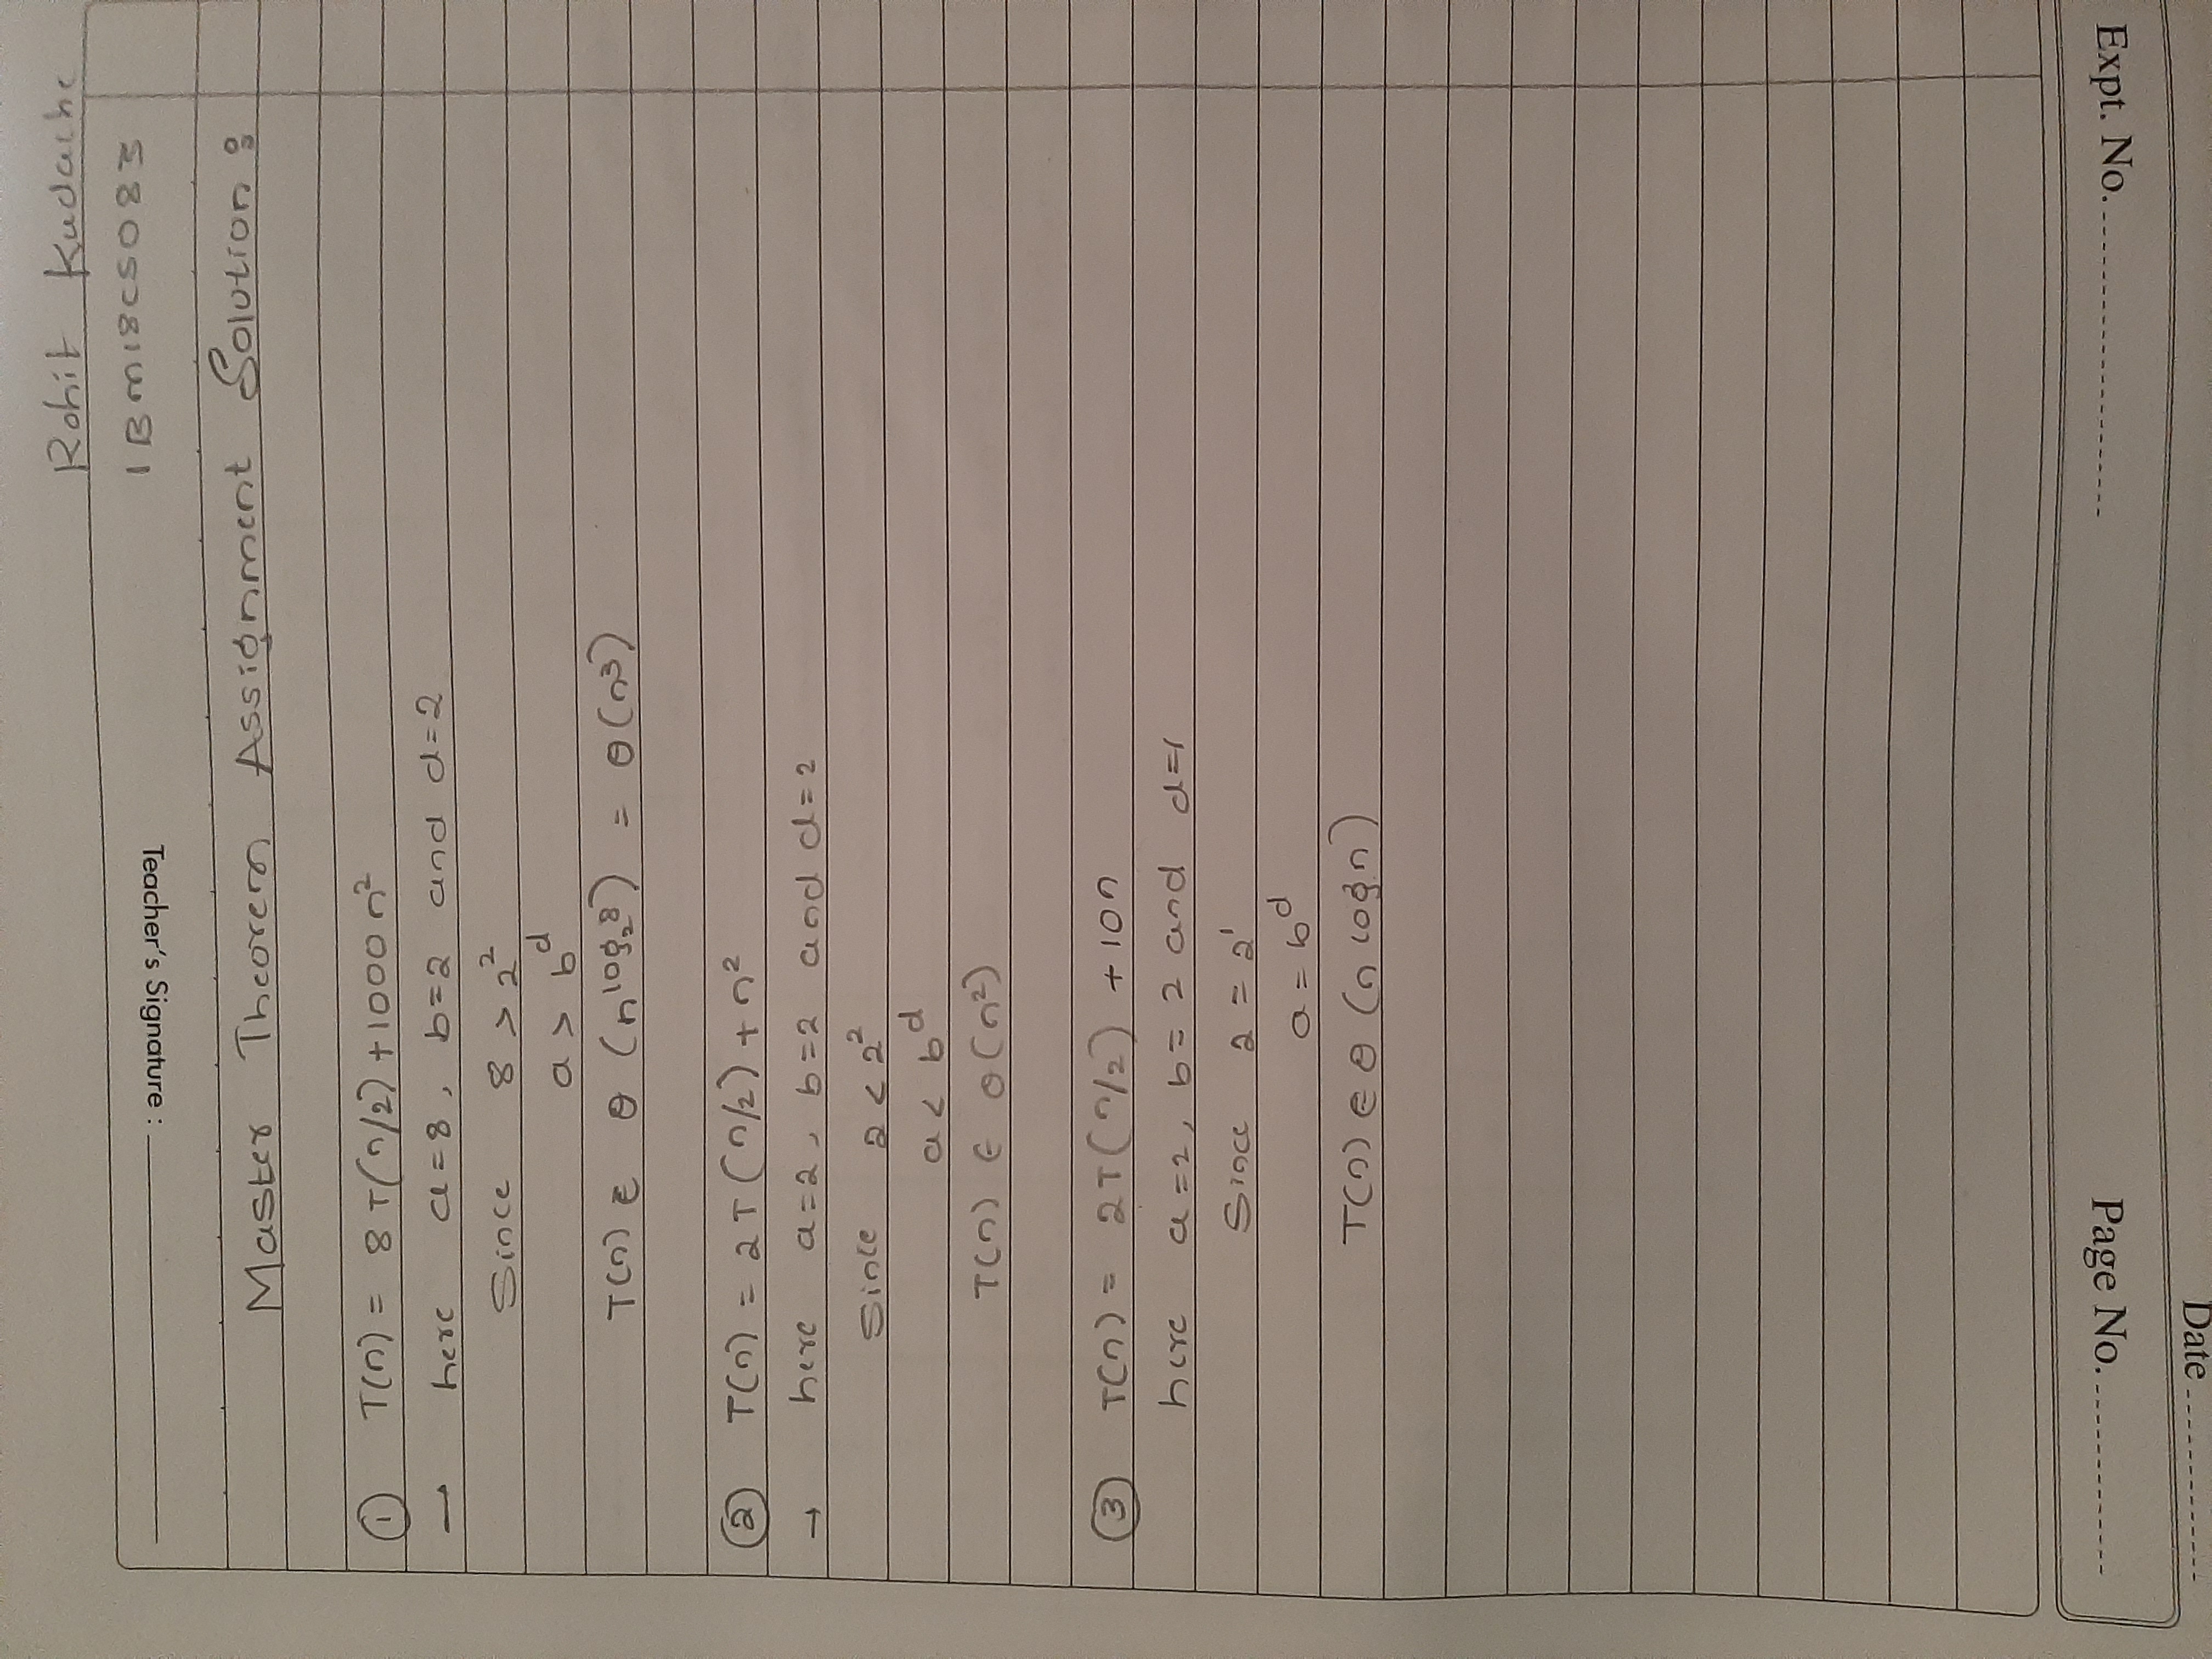 Rohit Kudache
1BM18CS083
Teacher's Signature :
Master Theorem Assignment Solution :
① T(n) = 8T(n/2) + 1000 n²
→ here a=8, b=2 and d=2
Since 8 > 2²
a > b^d
T(n) ∈ θ (n^log₂8) = θ(n³)
② T(n) = 2T(n/2) + n²
→ here a=2, b=2 and d=2
Since 2 < 2²
a < b^d
T(n) ∈ θ(n²)
③ T(n) = 2T(n/2) + 10n
here a=2, b=2 and d=1
Since 2 = 2¹
a = b^d
T(n) ∈ θ (n log n)
Expt. No.
Page No.
Date